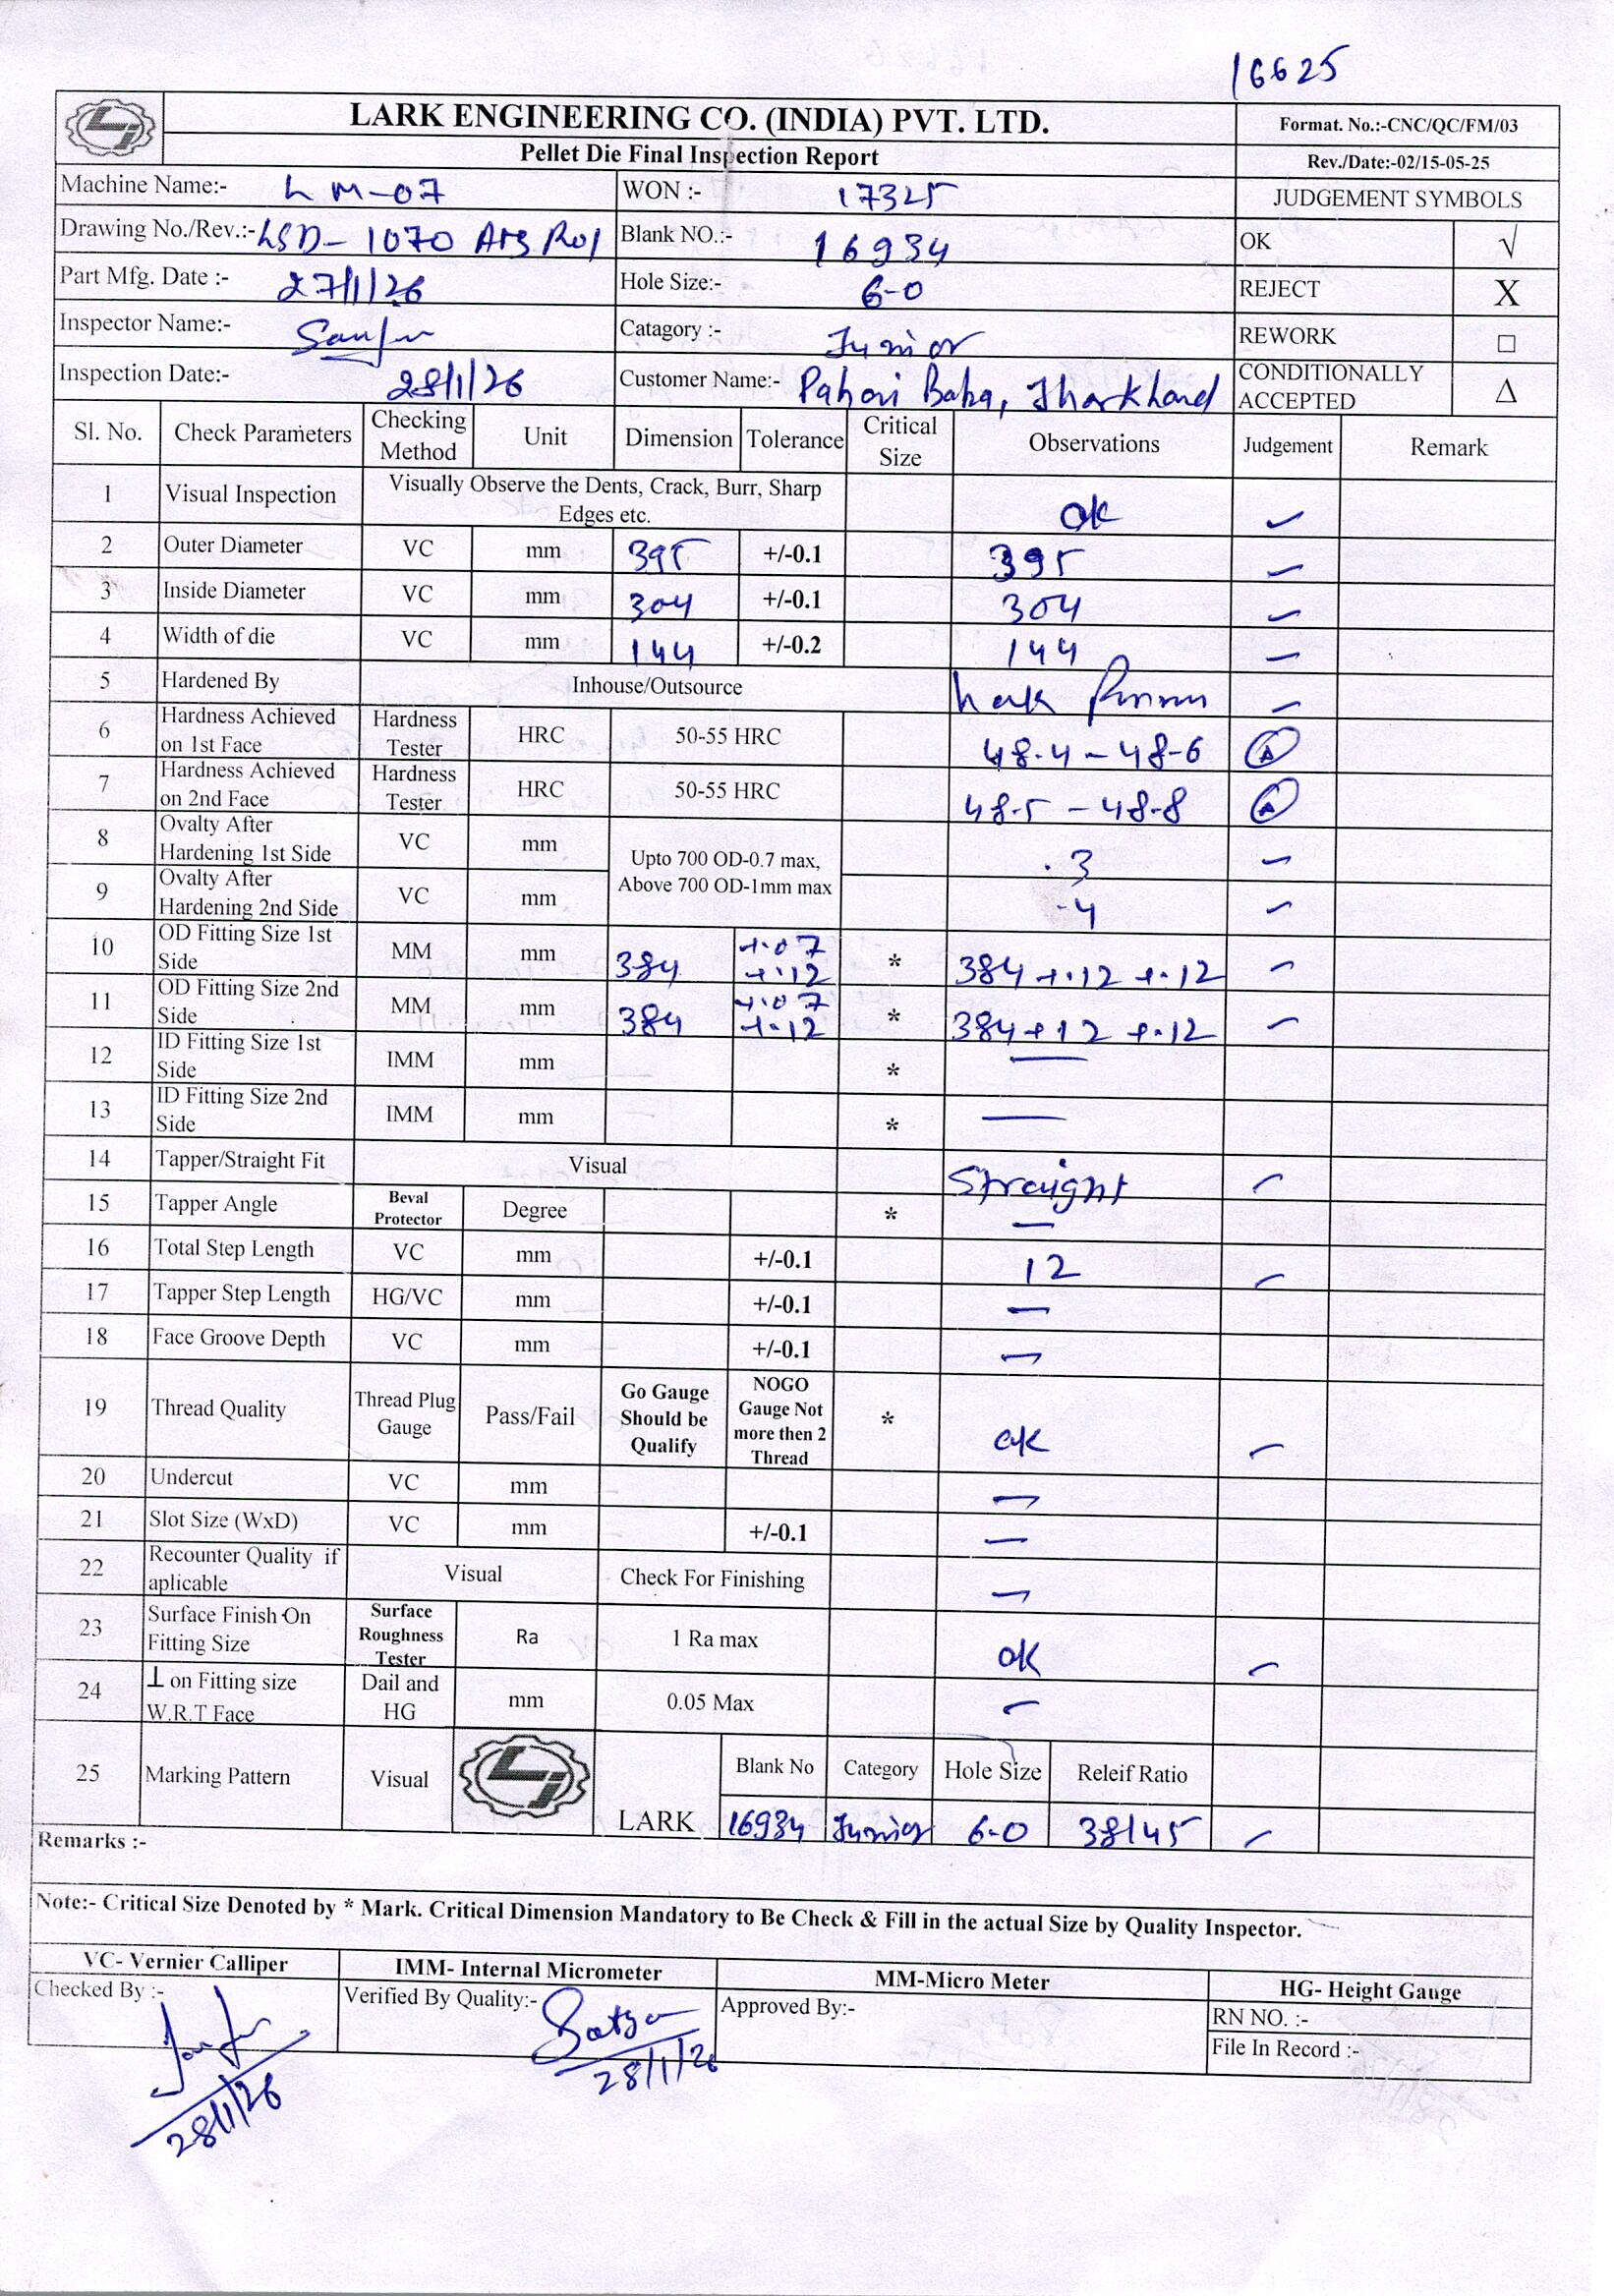 16625
LARK ENGINEERING CO. (INDIA) PVT. LTD.
Format. No.:-CNC/QC/FM/03
Pellet Die Final Inspection Report
Rev./Date:-02/15-05-25
Machine Name:- LM-07 WON :- 17325 JUDGEMENT SYMBOLS
Drawing No./Rev.:- LSD-1070 A13 R01 Blank NO.:- 16934 OK √
Part Mfg. Date :- 27/1/26 Hole Size:- 6-0 REJECT X
Inspector Name:- Catagory :- Junior REWORK □
Inspection Date:- 28/1/26 Customer Name:- Pahari Baba, Jharkhand CONDITIONALLY ACCEPTED Δ
Sl. No. Check Parameters Checking Method Unit Dimension Tolerance Critical Size Observations Judgement Remark
1 Visual Inspection Visually Observe the Dents, Crack, Burr, Sharp Edges etc. ok ✓
2 Outer Diameter VC mm 395 +/-0.1 395 ✓
3 Inside Diameter VC mm 304 +/-0.1 304 ✓
4 Width of die VC mm 144 +/-0.2 144 ✓
5 Hardened By Inhouse/Outsource Lark ✓
6 Hardness Achieved on 1st Face Hardness Tester HRC 50-55 HRC 48.4 - 48-6 Δ
7 Hardness Achieved on 2nd Face Hardness Tester HRC 50-55 HRC 48.5 - 48.8 Δ
8 Ovalty After Hardening 1st Side VC mm Upto 700 OD-0.7 max, Above 700 OD-1mm max .3 ✓
9 Ovalty After Hardening 2nd Side VC mm .4 ✓
10 OD Fitting Size 1st Side MM mm 384 +.07 +.12 * 384 +.12 +.12 ✓
11 OD Fitting Size 2nd Side MM mm 384 +.07 +.12 * 384 +12 +.12 ✓
12 ID Fitting Size 1st Side IMM mm * —
13 ID Fitting Size 2nd Side IMM mm * —
14 Tapper/Straight Fit Visual Straight ✓
15 Tapper Angle Beval Protector Degree * —
16 Total Step Length VC mm +/-0.1 12 ✓
17 Tapper Step Length HG/VC mm +/-0.1 —
18 Face Groove Depth VC mm +/-0.1 —
19 Thread Quality Thread Plug Gauge Pass/Fail Go Gauge Should be Qualify NOGO Gauge Not more then 2 Thread * ok ✓
20 Undercut VC mm —
21 Slot Size (WxD) VC mm +/-0.1 —
22 Recounter Quality if aplicable Visual Check For Finishing —
23 Surface Finish On Fitting Size Surface Roughness Tester Ra 1 Ra max ok ✓
24 ⊥ on Fitting size W.R.T Face Dail and HG mm 0.05 Max —
25 Marking Pattern Visual LARK Blank No Category Hole Size Releif Ratio
16934 Junior 6-0 38/45 ✓
Remarks :-
Note:- Critical Size Denoted by * Mark. Critical Dimension Mandatory to Be Check & Fill in the actual Size by Quality Inspector.
VC- Vernier Calliper IMM- Internal Micrometer MM-Micro Meter HG- Height Gauge
Checked By :- Verified By Quality:- Satya Approved By:- RN NO. :-
File In Record :-
28/1/26 28/1/26